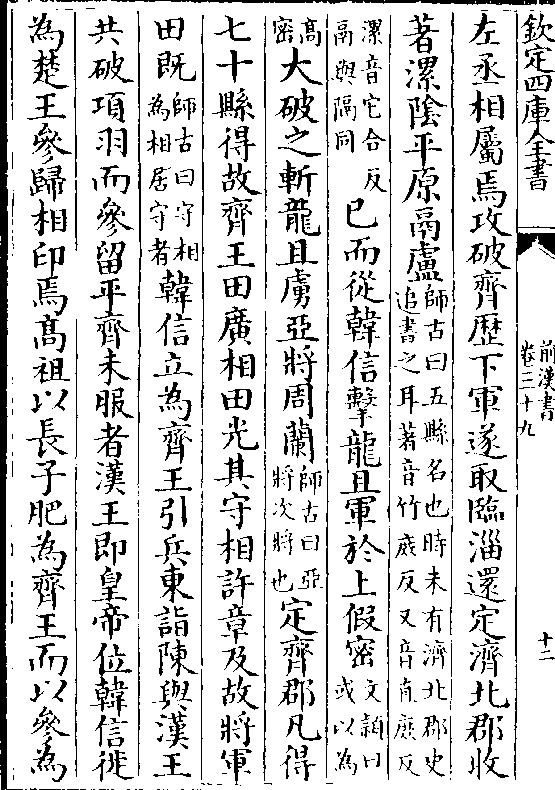 欽定四庫全書
前漢書
卷三十九
十二
左丞相屬焉攻破齊歴下軍遂取臨淄還定濟北郡收
著漯隂平原鬲盧師古曰五縣名也時未有濟北郡史追書之耳著音竹庶反又音直庶反
漯音它合反鬲與隔同已而從韓信擊龍且軍於上假密文頴曰或以為
高密大破之斬龍且虜亞將周蘭師古曰亞將次將也定齊郡凡得
七十縣得故齊王田廣相田光其守相許章及故將軍
田既師古曰守相為相居守者韓信立為齊王引兵東詣陳與漢王
共破項羽而參留平齊未服者漢王即皇帝位韓信徙
為楚王參歸相印焉高祖以長子肥為齊王而以參為